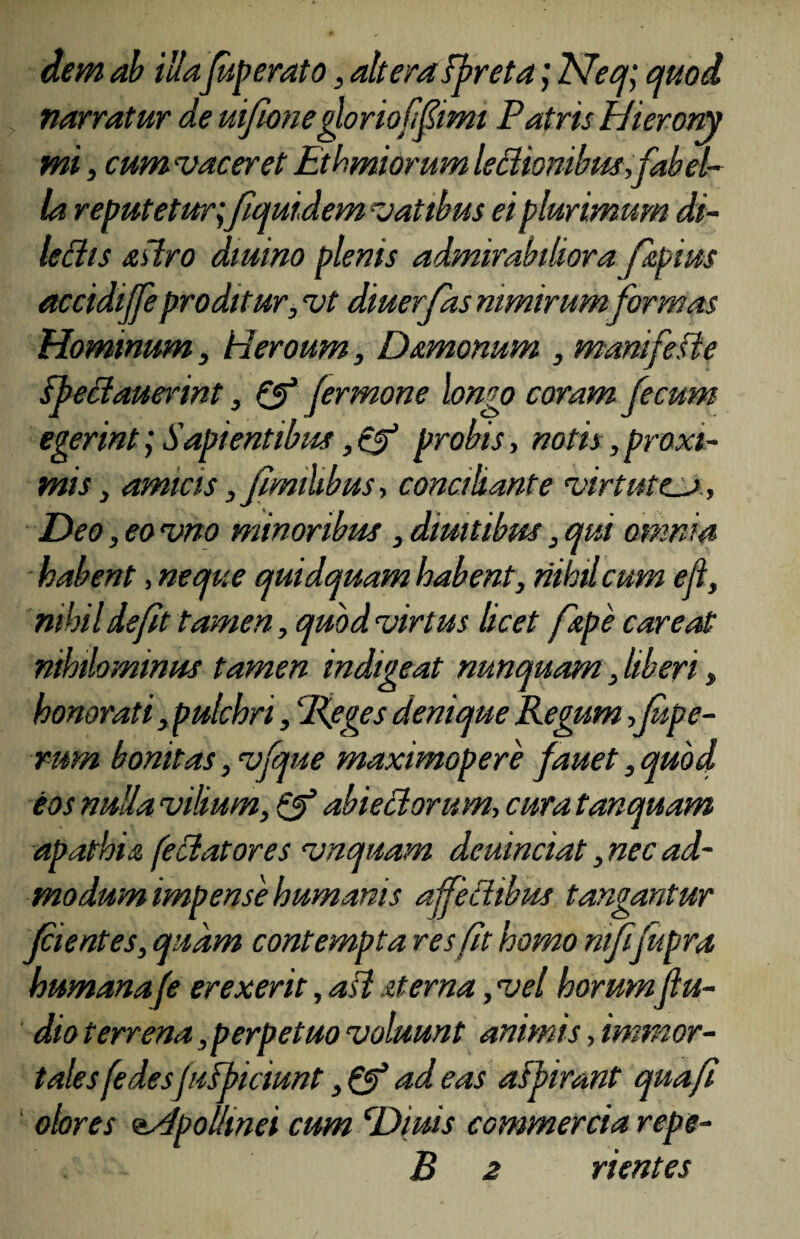 dem ab illa ſuperato, altera ſpreta; Neq; quod
narratur de uiſione glorioſiſſimi Patris Hierony
mi, cum vaceret Ethmiorum lectionibus, fabel-
la reputetur; ſiquidem vatibus ei plurimum di-
lectis æſtro diuino plenis admirabiliora ſæpius
accidiſſe proditur, vt diuerſas nimirum formas
Hominum, Heroum, Dæmonum, manifeſte
ſpectauerint, & ſermone longo coram ſecum
egerint; Sapientibus, & probis, notis, proxi-
mis, amicis, ſimilibus, conciliante virtute,
Deo, eo vno minoribus, diuitibus, qui omnia
habent, neque quidquam habent, nihil cum eſt,
nihil deſit tamen, quòd virtus licet ſæpè careat
nihilominus tamen indigeat nunquam, liberi,
honorati, pulchri, Reges denique Regum, ſupe-
rum bonitas, vſque maximoperè fauet, quòd
eos nulla vilium, & abiectorum, cura tanquam
apathiæ ſectatores vnquam deuinciat, nec ad-
modum impensè humanis affectibus tangantur
ſcientes, quàm contempta res ſit homo niſi ſupra
humana ſe erexerit, aſt æterna, vel horum ſtu-
dio terrena, perpetuo voluunt animis, immor-
tales ſedes ſuſpiciunt, & ad eas aſpirant quaſi
olores Apollinei cum Diuis commercia repe-
B 2 rientes